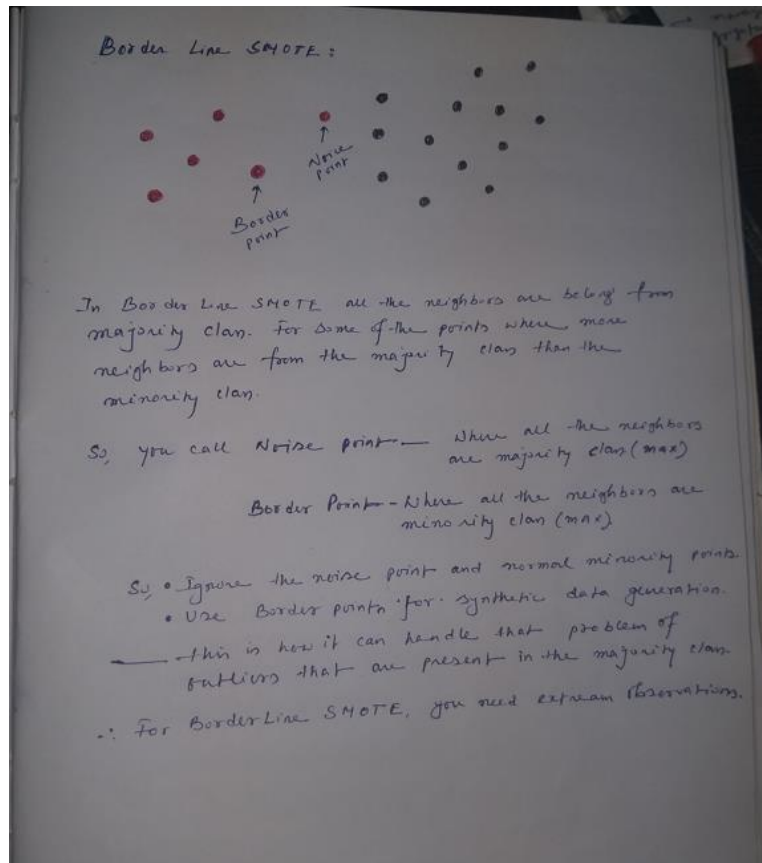 Border Line SMOTE :
Noise
point
Border
point
In Border Line SMOTE all the neighbors are belong from
majority class. For some of the points where more
neighbors are from the majority class than the
minority class.
So, you call Noise point — Where all the neighbors
are majority class (max)
Border Point - Where all the neighbors are
minority class (max)
So, • Ignore the noise point and normal minority points.
• Use Border points for synthetic data generation.
— This is how it can handle that problem of
outliers that are present in the majority class.
∴ For BorderLine SMOTE, you need extream observations.